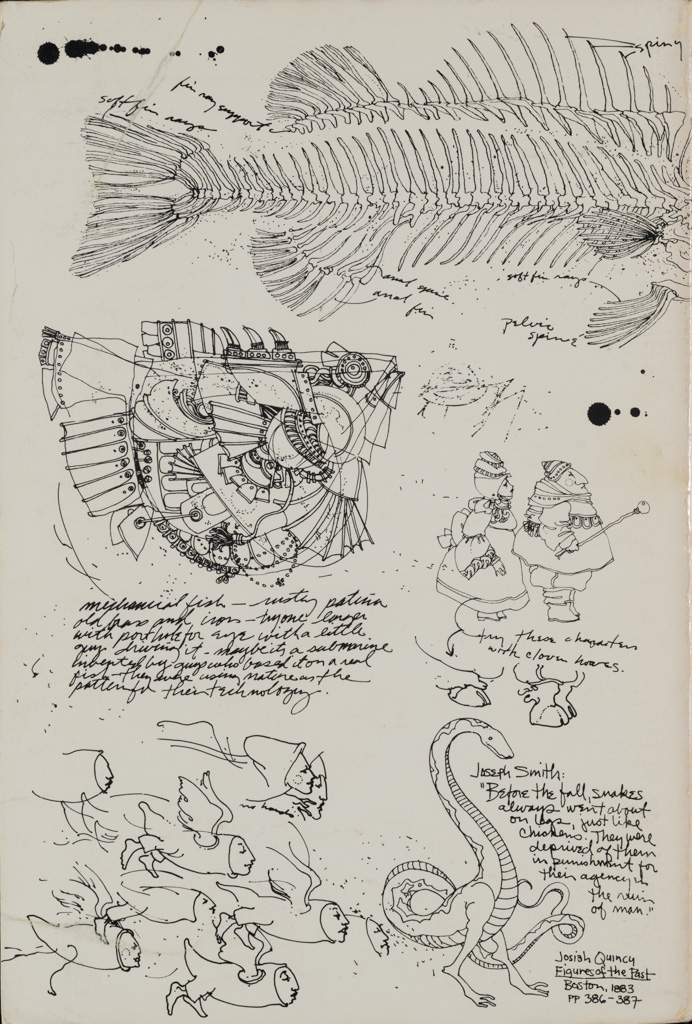 spiny
fin ray supports
soft fin rays
anal spine
anal fin
soft fin rays
pelvic
spine
mechanical fish — rusty patina
old brass and iron —
with porthole for eye with a little
guy driving it – maybe it's a submarine
invented by guys who based it on a real
fish – they were using nature as the
pattern for their technology.
try these characters
with cloven hooves.
Joseph Smith:
"Before the fall, snakes
always went about
on legs, just like
chickens. They were
deprived of them
in punishment for
their agency in
the ruin
of man."
Josiah Quincy
Figures of the Past
Boston, 1883
PP 386-387